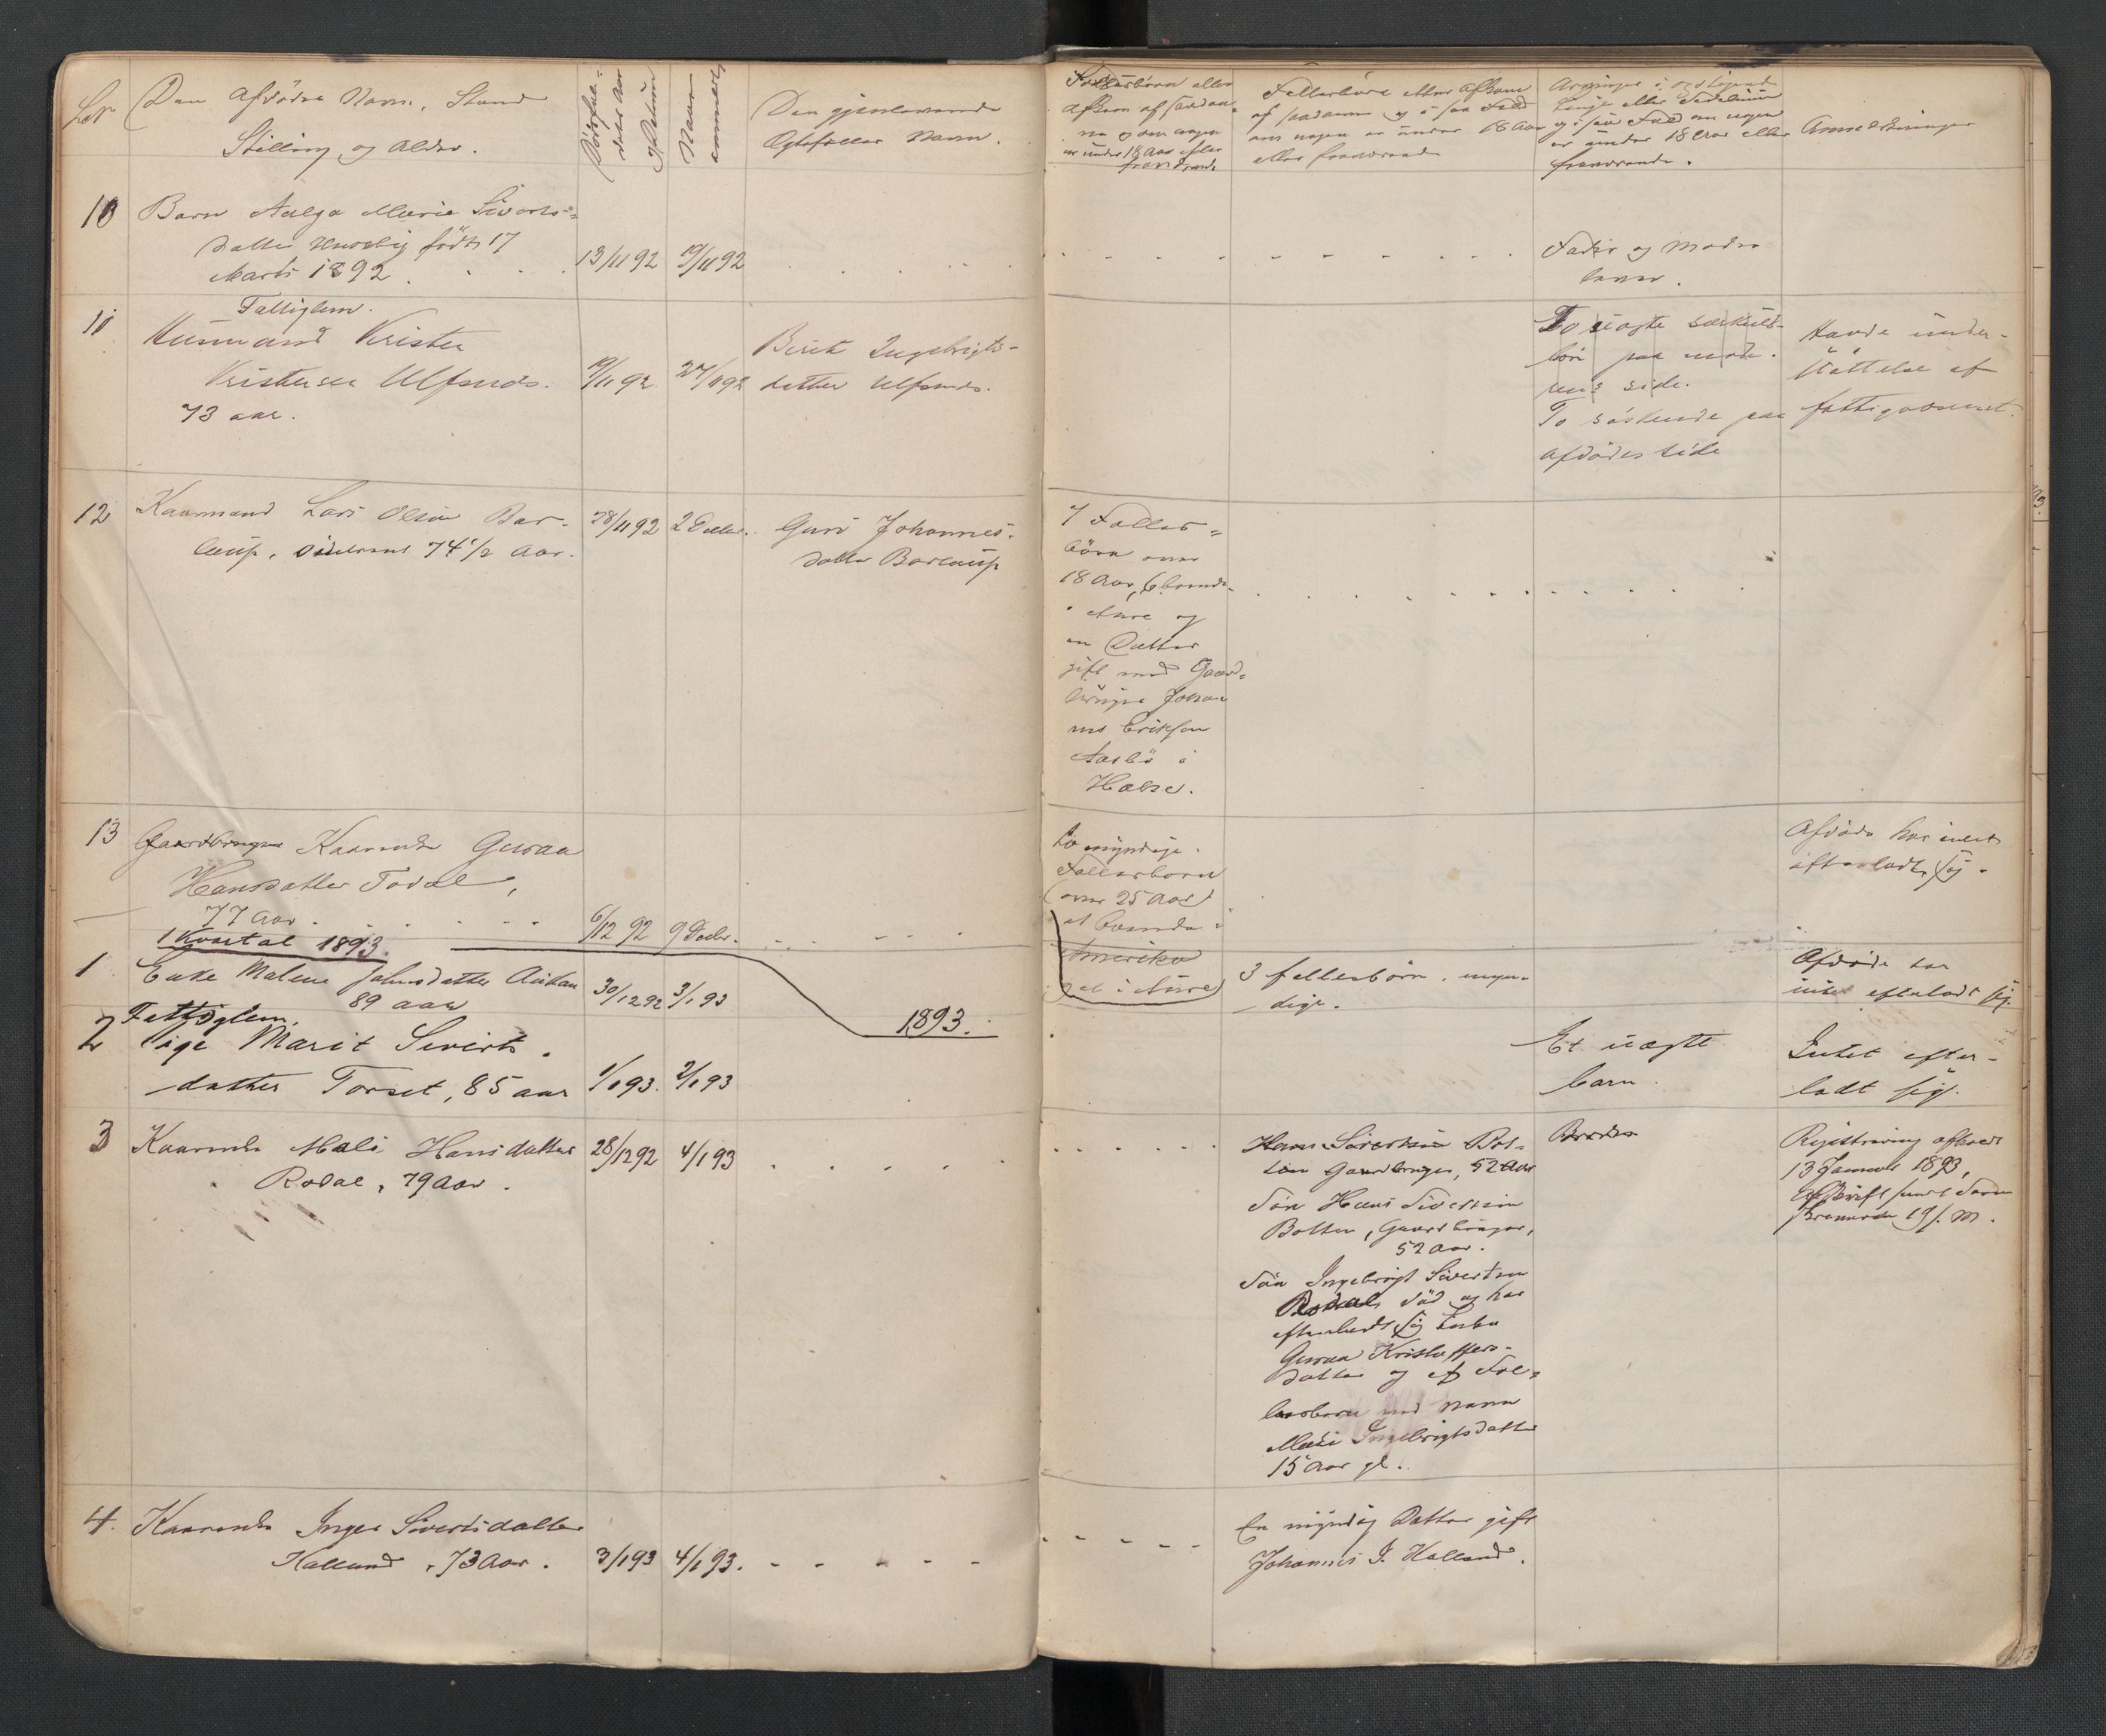 Lø
Den Afdødes Navn, Stand
Stilling og Alder.
Dødsfal-
dets Aar
Datum
Naar
anmeldt
Den gjenlevende
Ægtefælles Navn.
Fællesbørn eller
Afkom af saadan-
ne og om nogen
er under 18 Aar eller
fraværende
Fællesbørn eller Afkom
af saadanne og i saa Fald
om nogen er under 18 Aar
eller fraværende
Arvinger i opstigende
Linje eller Sidelinie
og i saa Fald om nogen
er under 18 Aar eller
fraværende.
Anmærkninger
10
Barn Aalga Marie Siverts-
datter Husebig født 17
Marts 1892
13/11 92
19/11 92
Fader og Moder
lever.
11
Fattiglem.
Husmand Krister
Kristensen Ulfsnds.
73 aar.
19/11 92
24/11 92
Berit Ingebrigts-
datter Ulfsnds.
To uægte særkuls-
børn paa mode-
rens side.
To søskende paa
afdødes side
Havde under-
støttelse af
fattigvæsenet.
12
Kaarmand Lars Olsen Bæ-
verup, 74 1/2 Aar.
28/11 92
2 Decbr.
Guri Johannes-
datter
7 Fælles-
børn over
18 Aar, 6 boende
i Aure og
en Datter
gift med Gaard-
bruger Johan-
nes Eriksen
Aasbø i
Halse.
13
Gaardbruger Kaarenke Guroa
Hansdatter Todal,
77 Aar
6/12 92
9 Decbr.
to myndige
Fællesborn
(over 25 Aar)
et boende i
Amerika
og et i Aure
Afdøde har intet
efterladt sig.
1 Kvartal 1893.
1893.
1
Enke Malene Johnsdatter
89 aar
30/12 92
3/1 93
3 fellesbørn, myn-
dige.
Afdøde har
intet efterladt sig.
2
Fattiglem,
Pige Marit Siverts-
datter Torset, 85 aar
1/1 93.
2/1 93
Et uægte
barn.
Intet efter-
ladt sig.
3
Kaarenke Mali Hansdatter
Rodal, 79 Aar.
28/12 92
4/1 93
Hans Sivertsen Bot-
ten Gaardbruger, 52 Aar
Søn Hans Sivertsen
Botten, Gaardbruger,
52 Aar.
Søn Ingebrigt Sivertsen
Rodal død og har
efterladt sig Enke
Guroa Kristoffers-
datter og et Fæl-
lesbarn med Navn
Mali Ingebrigtsdatter
15 Aar gl.
Broder
Registrering afholdt
13 Januar 1893,
Afskrift sendt
19/1. M.
4.
Kaarenke Inger Sivertsdatter
Halland, 73 Aar.
3/1 93
4/1 93.
En myndig Datter gift
Johannes J. Halland.